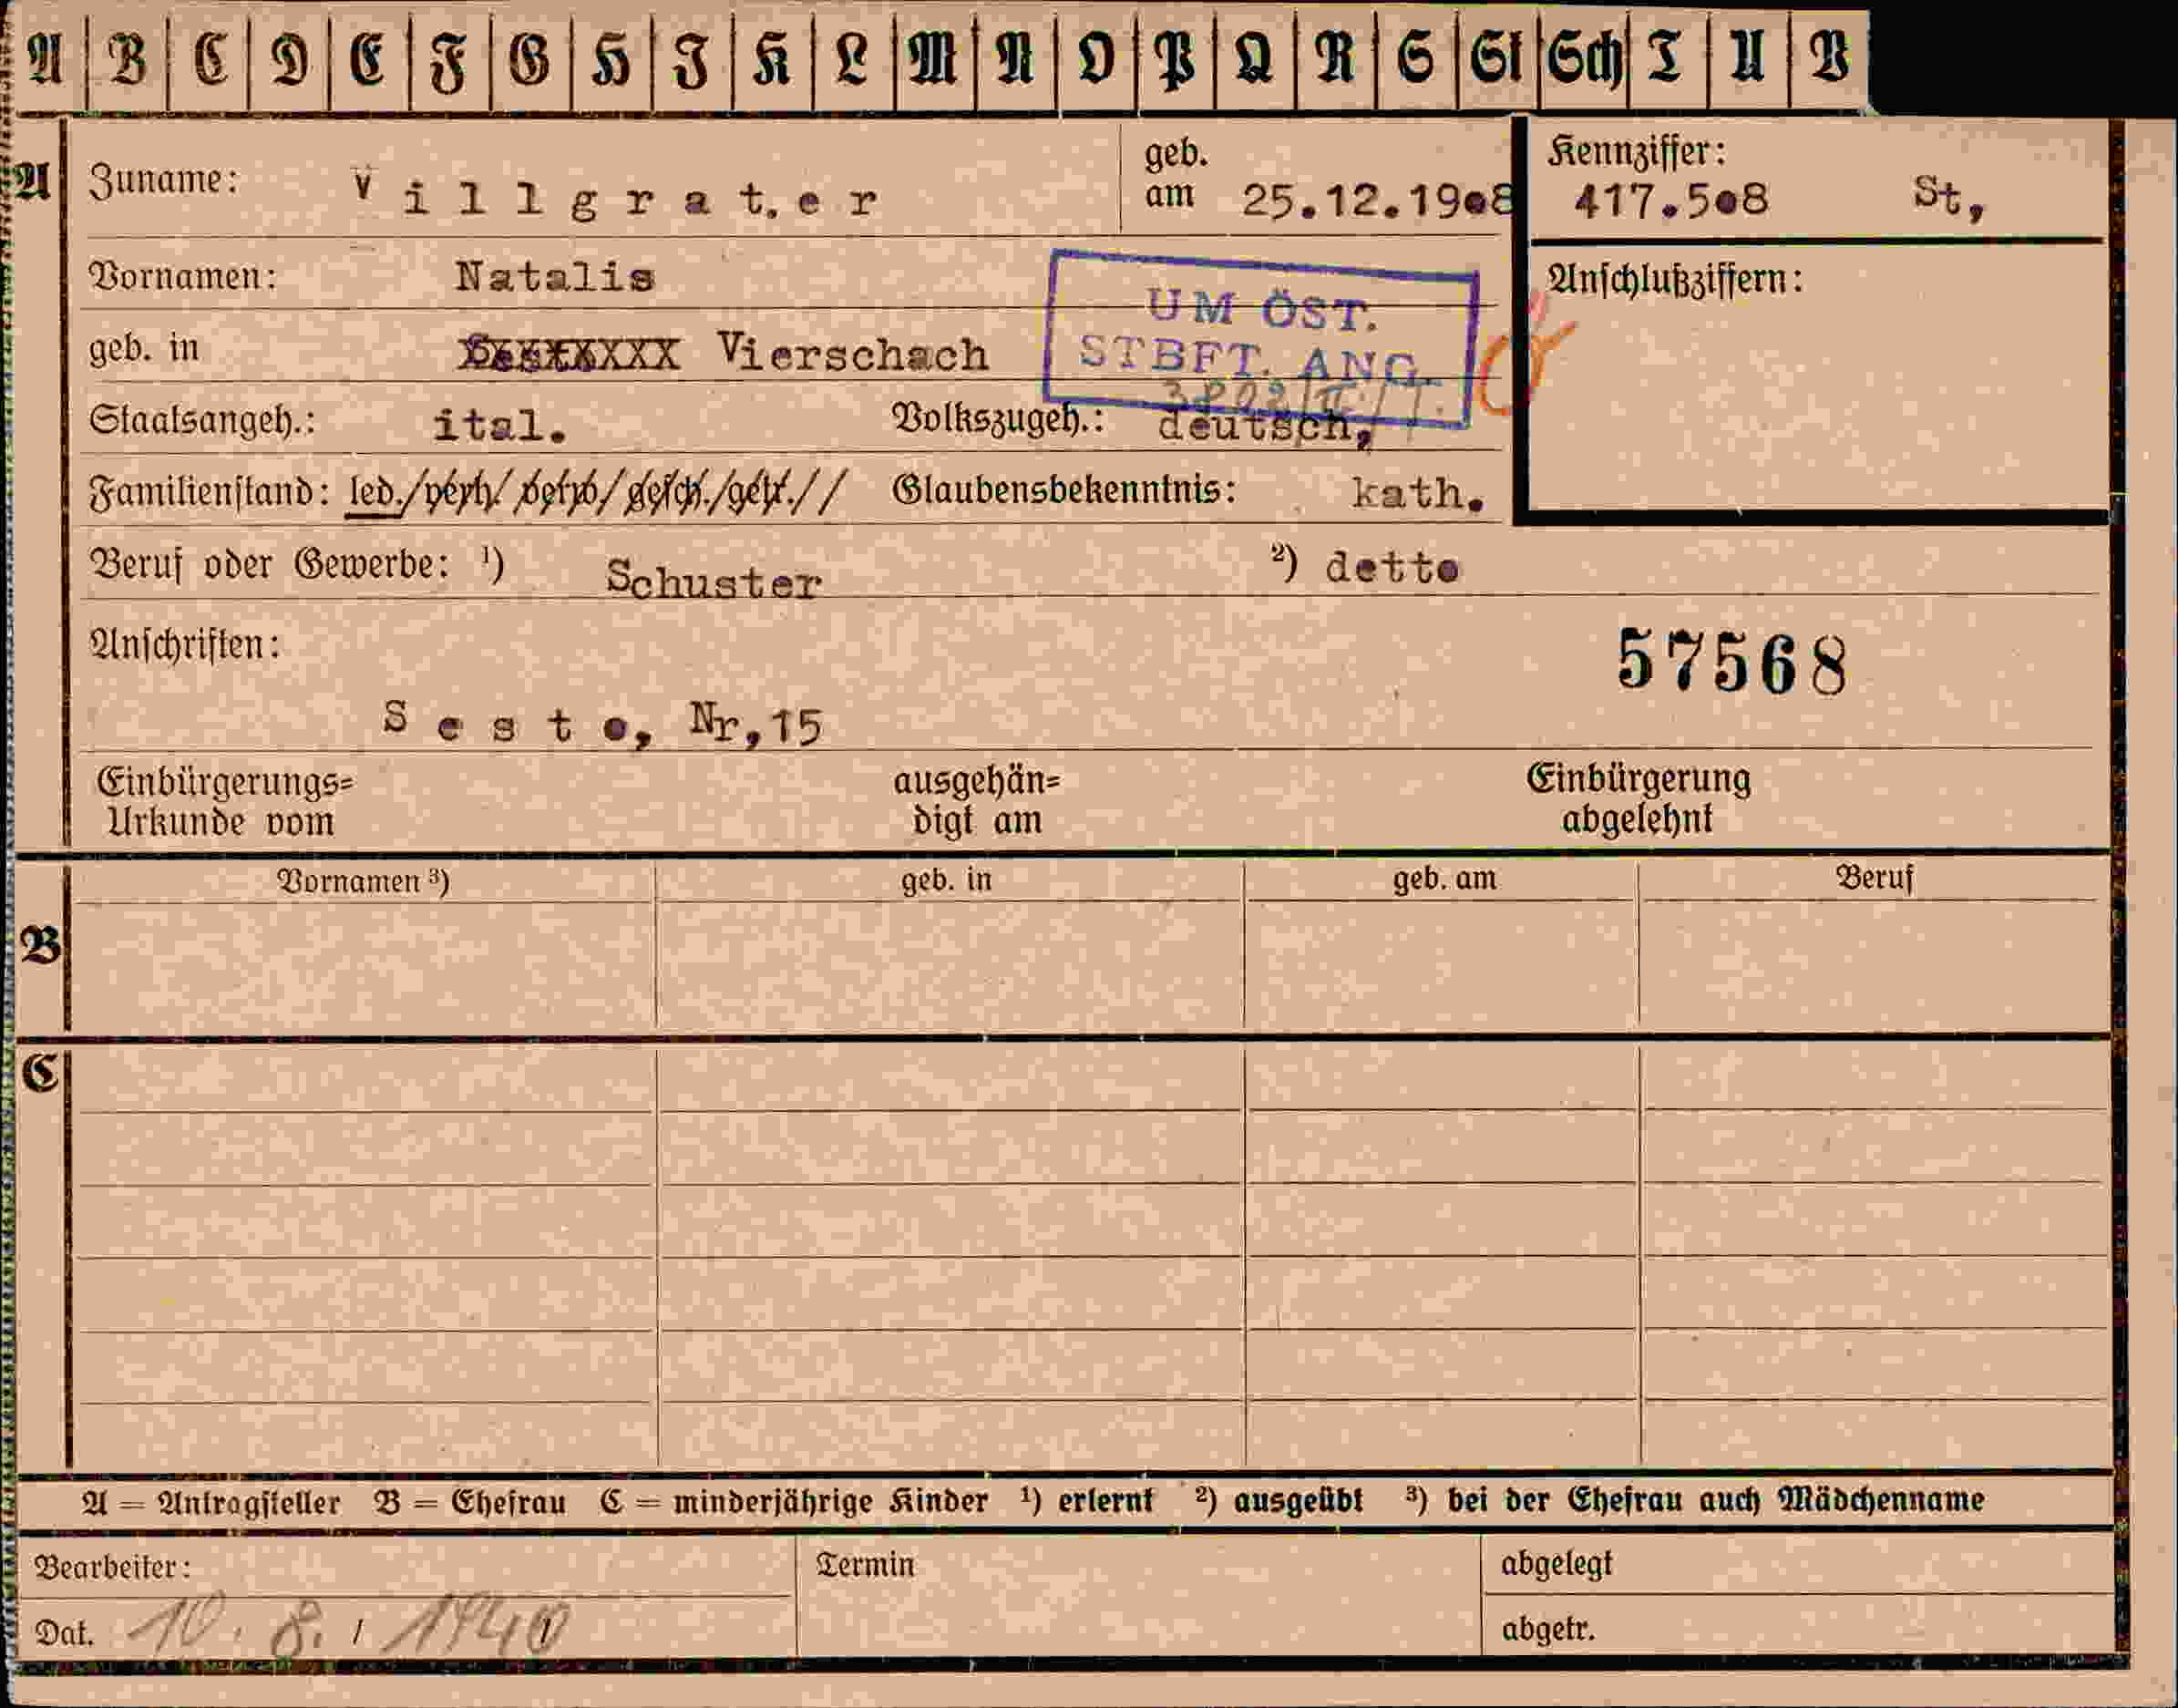 A B C D E F G H I K L M N O P Q R S St Sch T U V
A Zuname: Villgrater geb. am 25.12.1908 Kennziffer: 417.508 St,
Vornamen: Natalis Anschlußziffern:
UM ÖST.
geb. in Vierschach STBFT. ANG.
Staatsangeh.: ital. Volkszugeh.: deutsch,
Familienstand: led./verh./verw./gesch./getr.// Glaubensbekenntnis: kath.
Beruf oder Gewerbe: ¹) Schuster ²) detto
Anschriften: 57568
Sesto, Nr,15
Einbürgerungs= ausgehän= Einbürgerung
Urkunde vom digt am abgelehnt
Vornamen ³) geb. in geb. am Beruf
B
C
A = Antragsteller B = Ehefrau C = minderjährige Kinder ¹) erlernt ²) ausgeübt ³) bei der Ehefrau auch Mädchenname
Bearbeiter: Termin abgelegt
Dat. 10. 8. / 1940 abgetr.